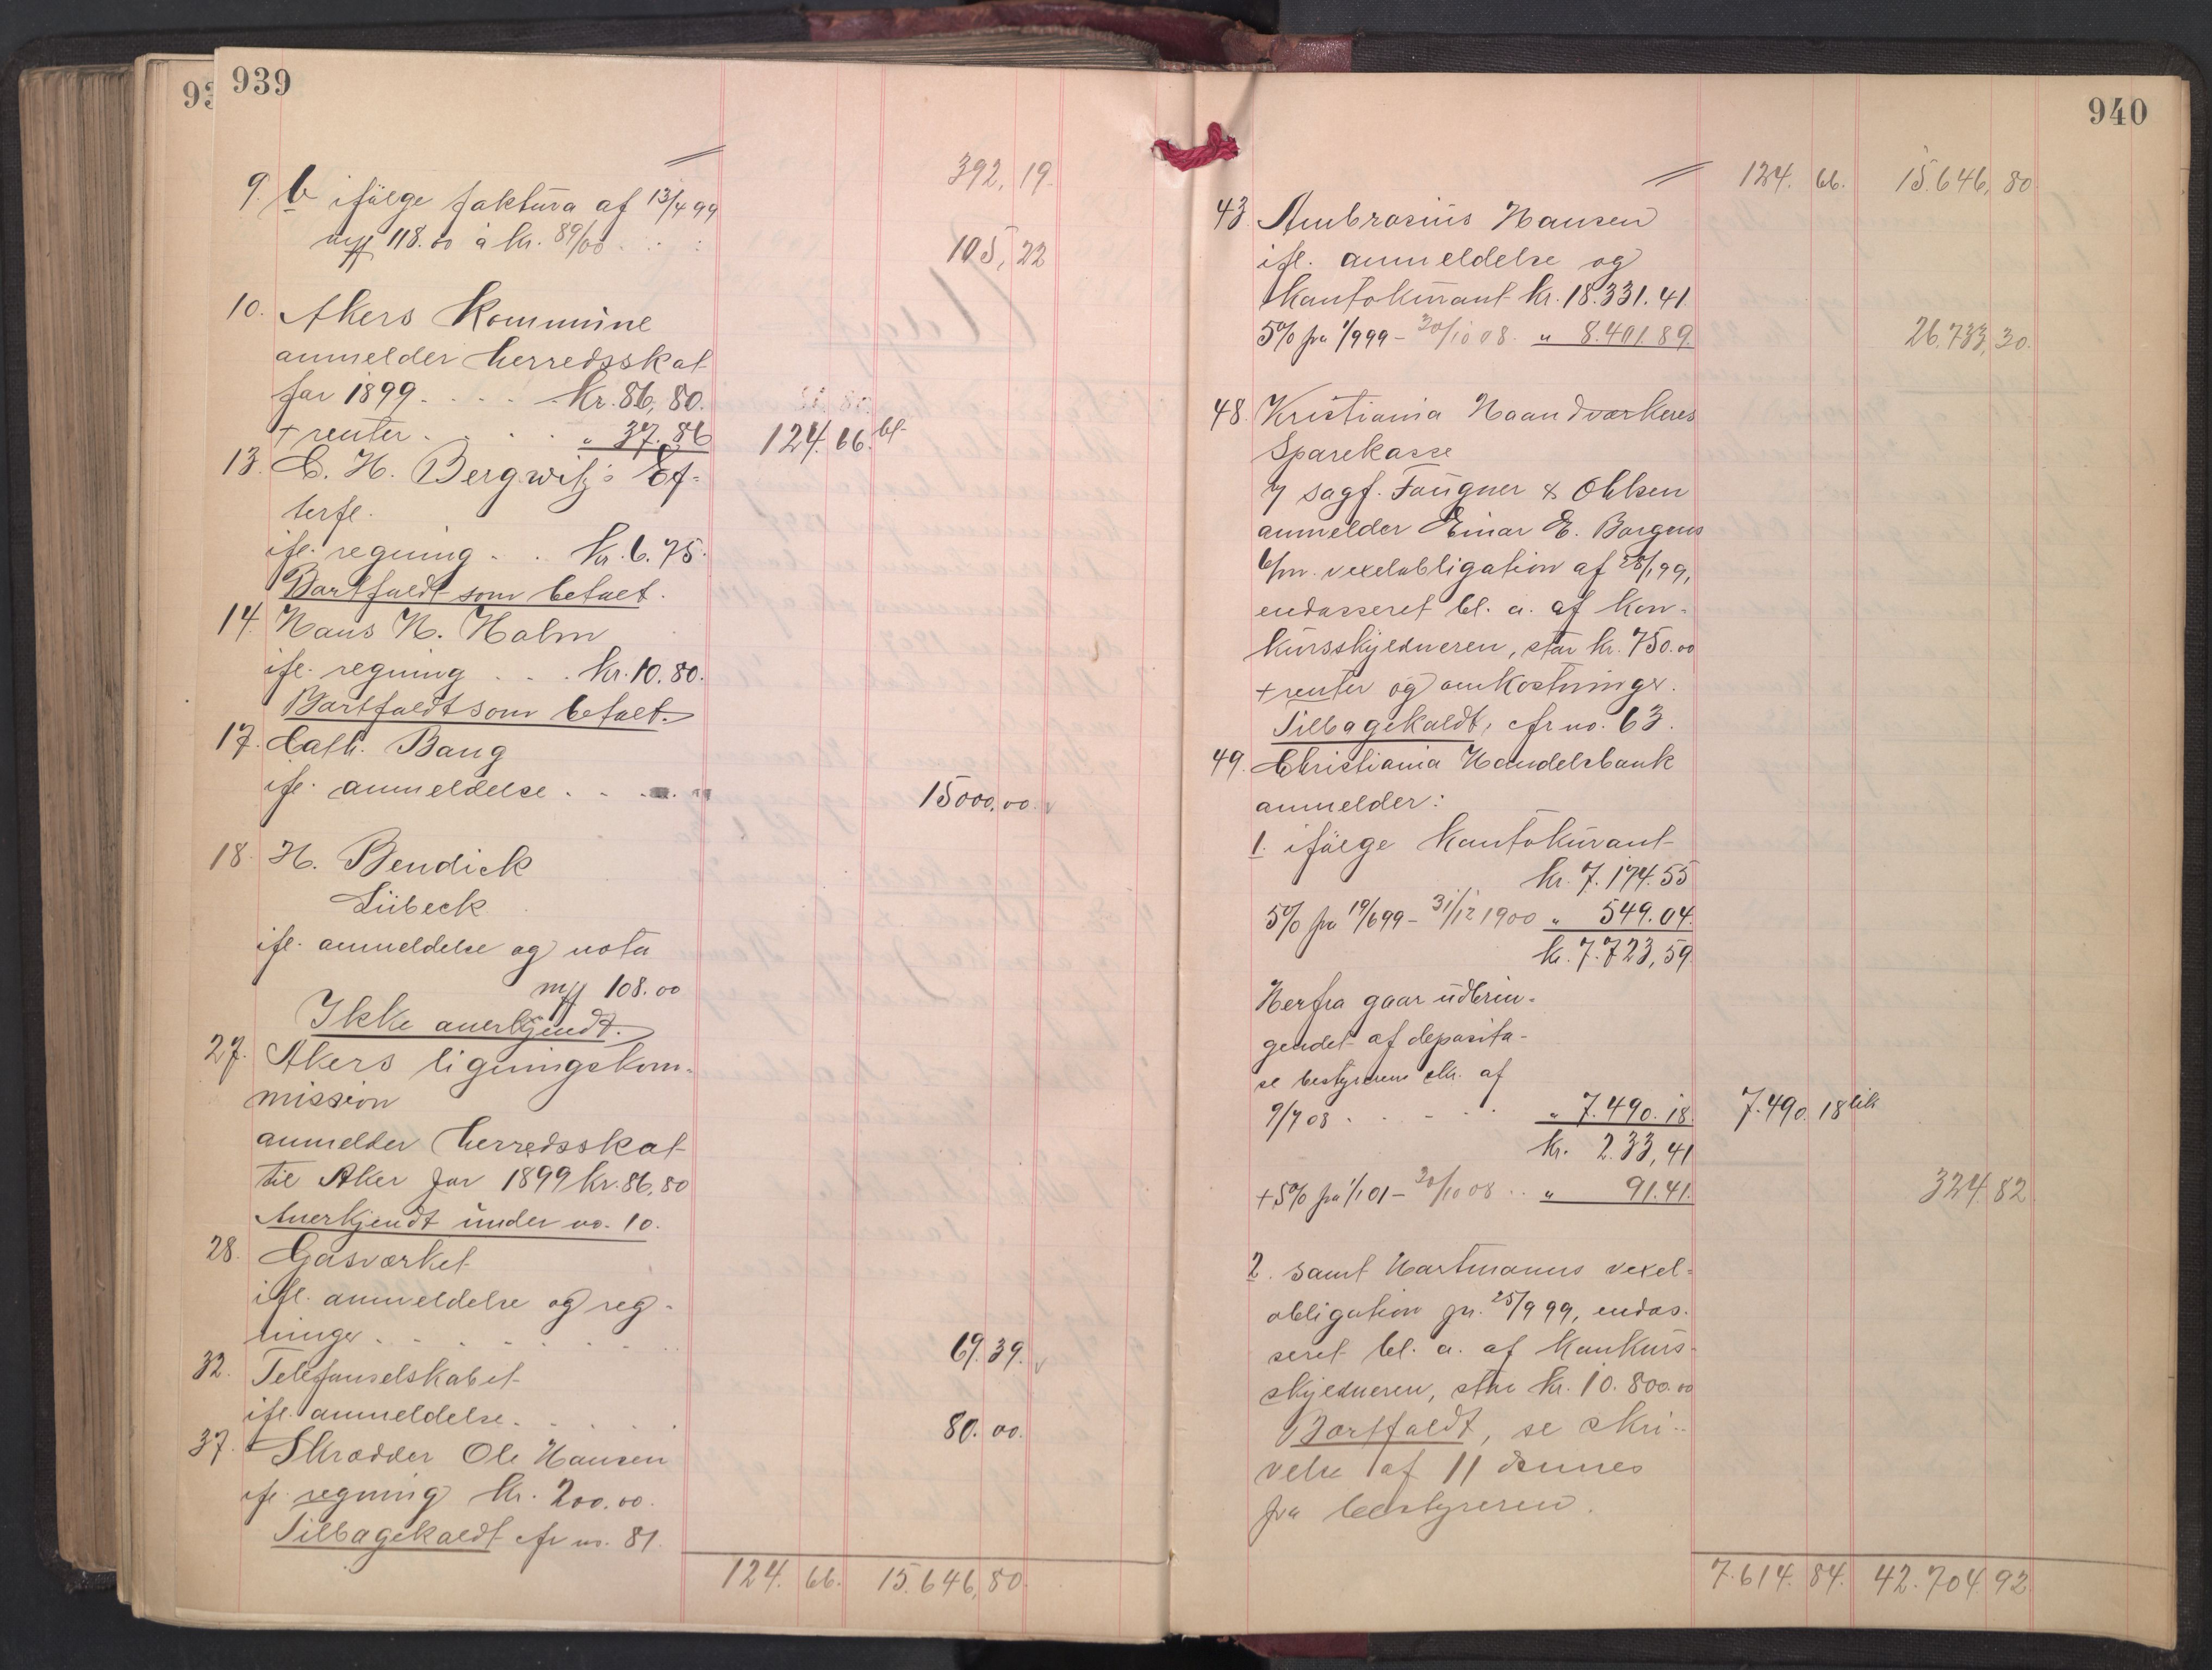 939
392, 19.
9. b ifølge faktura af 13/4 99
mff 118.00 à kr. 89/00 . . : 105, 22
10. Akers kommune
anmelder herredsskat
for 1899 . . . . . kr. 86, 80.
+ renter . . . . . " 37. 86 124. 66. bf.
13. C. H. Bergwitz's Ef-
terfl.
ifl. regning . . kr. 6. 75.
Bortfaldt som betalt.
14. Hans H. Holm
ifl. regning . . . kr. 10. 80.
Bortfaldt som betalt.
17. Cath. Bang
ifl. anmeldelse . . . 15000. 00.
18. H. Bendick
Lübeck
ifl. anmeldelse og nota
mff 108. 00
Ikke anerkjendt.
27. Akers ligningskom-
mission
anmelder herredsskat
til Aker for 1899 kr. 86, 80
Anerkjendt under no. 10.
28. Gasværket
ifl. anmeldelse og reg-
ninger . . . . . . . 69. 39.
32. Telefonselskabet
ifl. anmeldelse . . . . . 80. 00.
37. Skrædder Ole Hansen
ifl. regning kr. 200. 00.
Tilbagekaldt cfr no. 81.
124. 66. 15. 646, 80.
940
124. 66. 15. 646, 80
43. Ambrosius Hansen
ifl. anmeldelse og
kontokurant kr. 18. 331. 41.
5% fra 1/9 99 - 30/10 08. " 8. 401. 89. 26. 733, 30.
48. Kristiania Haandværkeres
Sparekasse
v/ sagf. Faugner & Ohlsen
anmelder Einar E. Borgens
6/m. vexelobligation af 28/1 99,
endosseret bl. a. af kon-
kursskyldneren, stor kr. 750. 00
+ renter og omkostninger.
Tilbagekaldt, cfr no. 63.
49. Christiania Handelsbank
anmelder:
1. ifølge kontokurant
kr. 7. 174. 55
5% fra 19/6 99 - 31/12 1900 " 549. 04.
kr. 7. 723, 59
Herfra gaar udbrin-
gendet af deposita-
se bestyrerens skr. af
9/7 08 . . . . . " 7. 490. 18. 7. 490. 18
kr. 233, 41
+ 5% fra 1/1 01 - 30/10 08 . . " 91. 41. 324. 82
2. samt Hartmanns vexel-
obligation pr. 25/9 99, endos-
seret bl. a. af konkurs-
skyldneren, stor kr. 10. 800. 00
Bortfaldt, se skri-
velse af 11 dennes
fra bestyreren.
7. 614. 84. 42. 704. 92